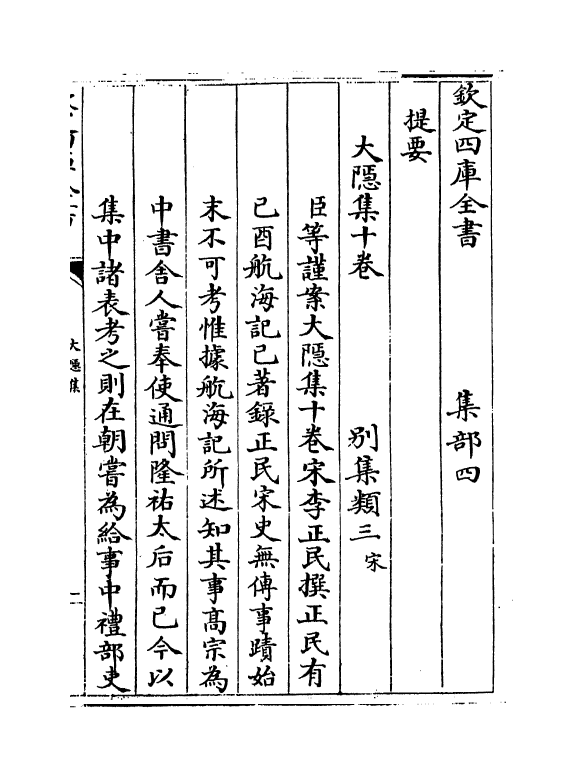 欽定四庫全書　集部四
提要
大隱集十卷　別集類三宋
臣等謹案大隱集十卷宋李正民撰正民有
己酉航海記已著錄正民宋史無傳事蹟始
末不可考惟據航海記所述知其事髙宗為
中書舍人嘗奉使通問隆祐太后而已今以
集中諸表考之則在朝嘗為給事中禮部吏
大隱集